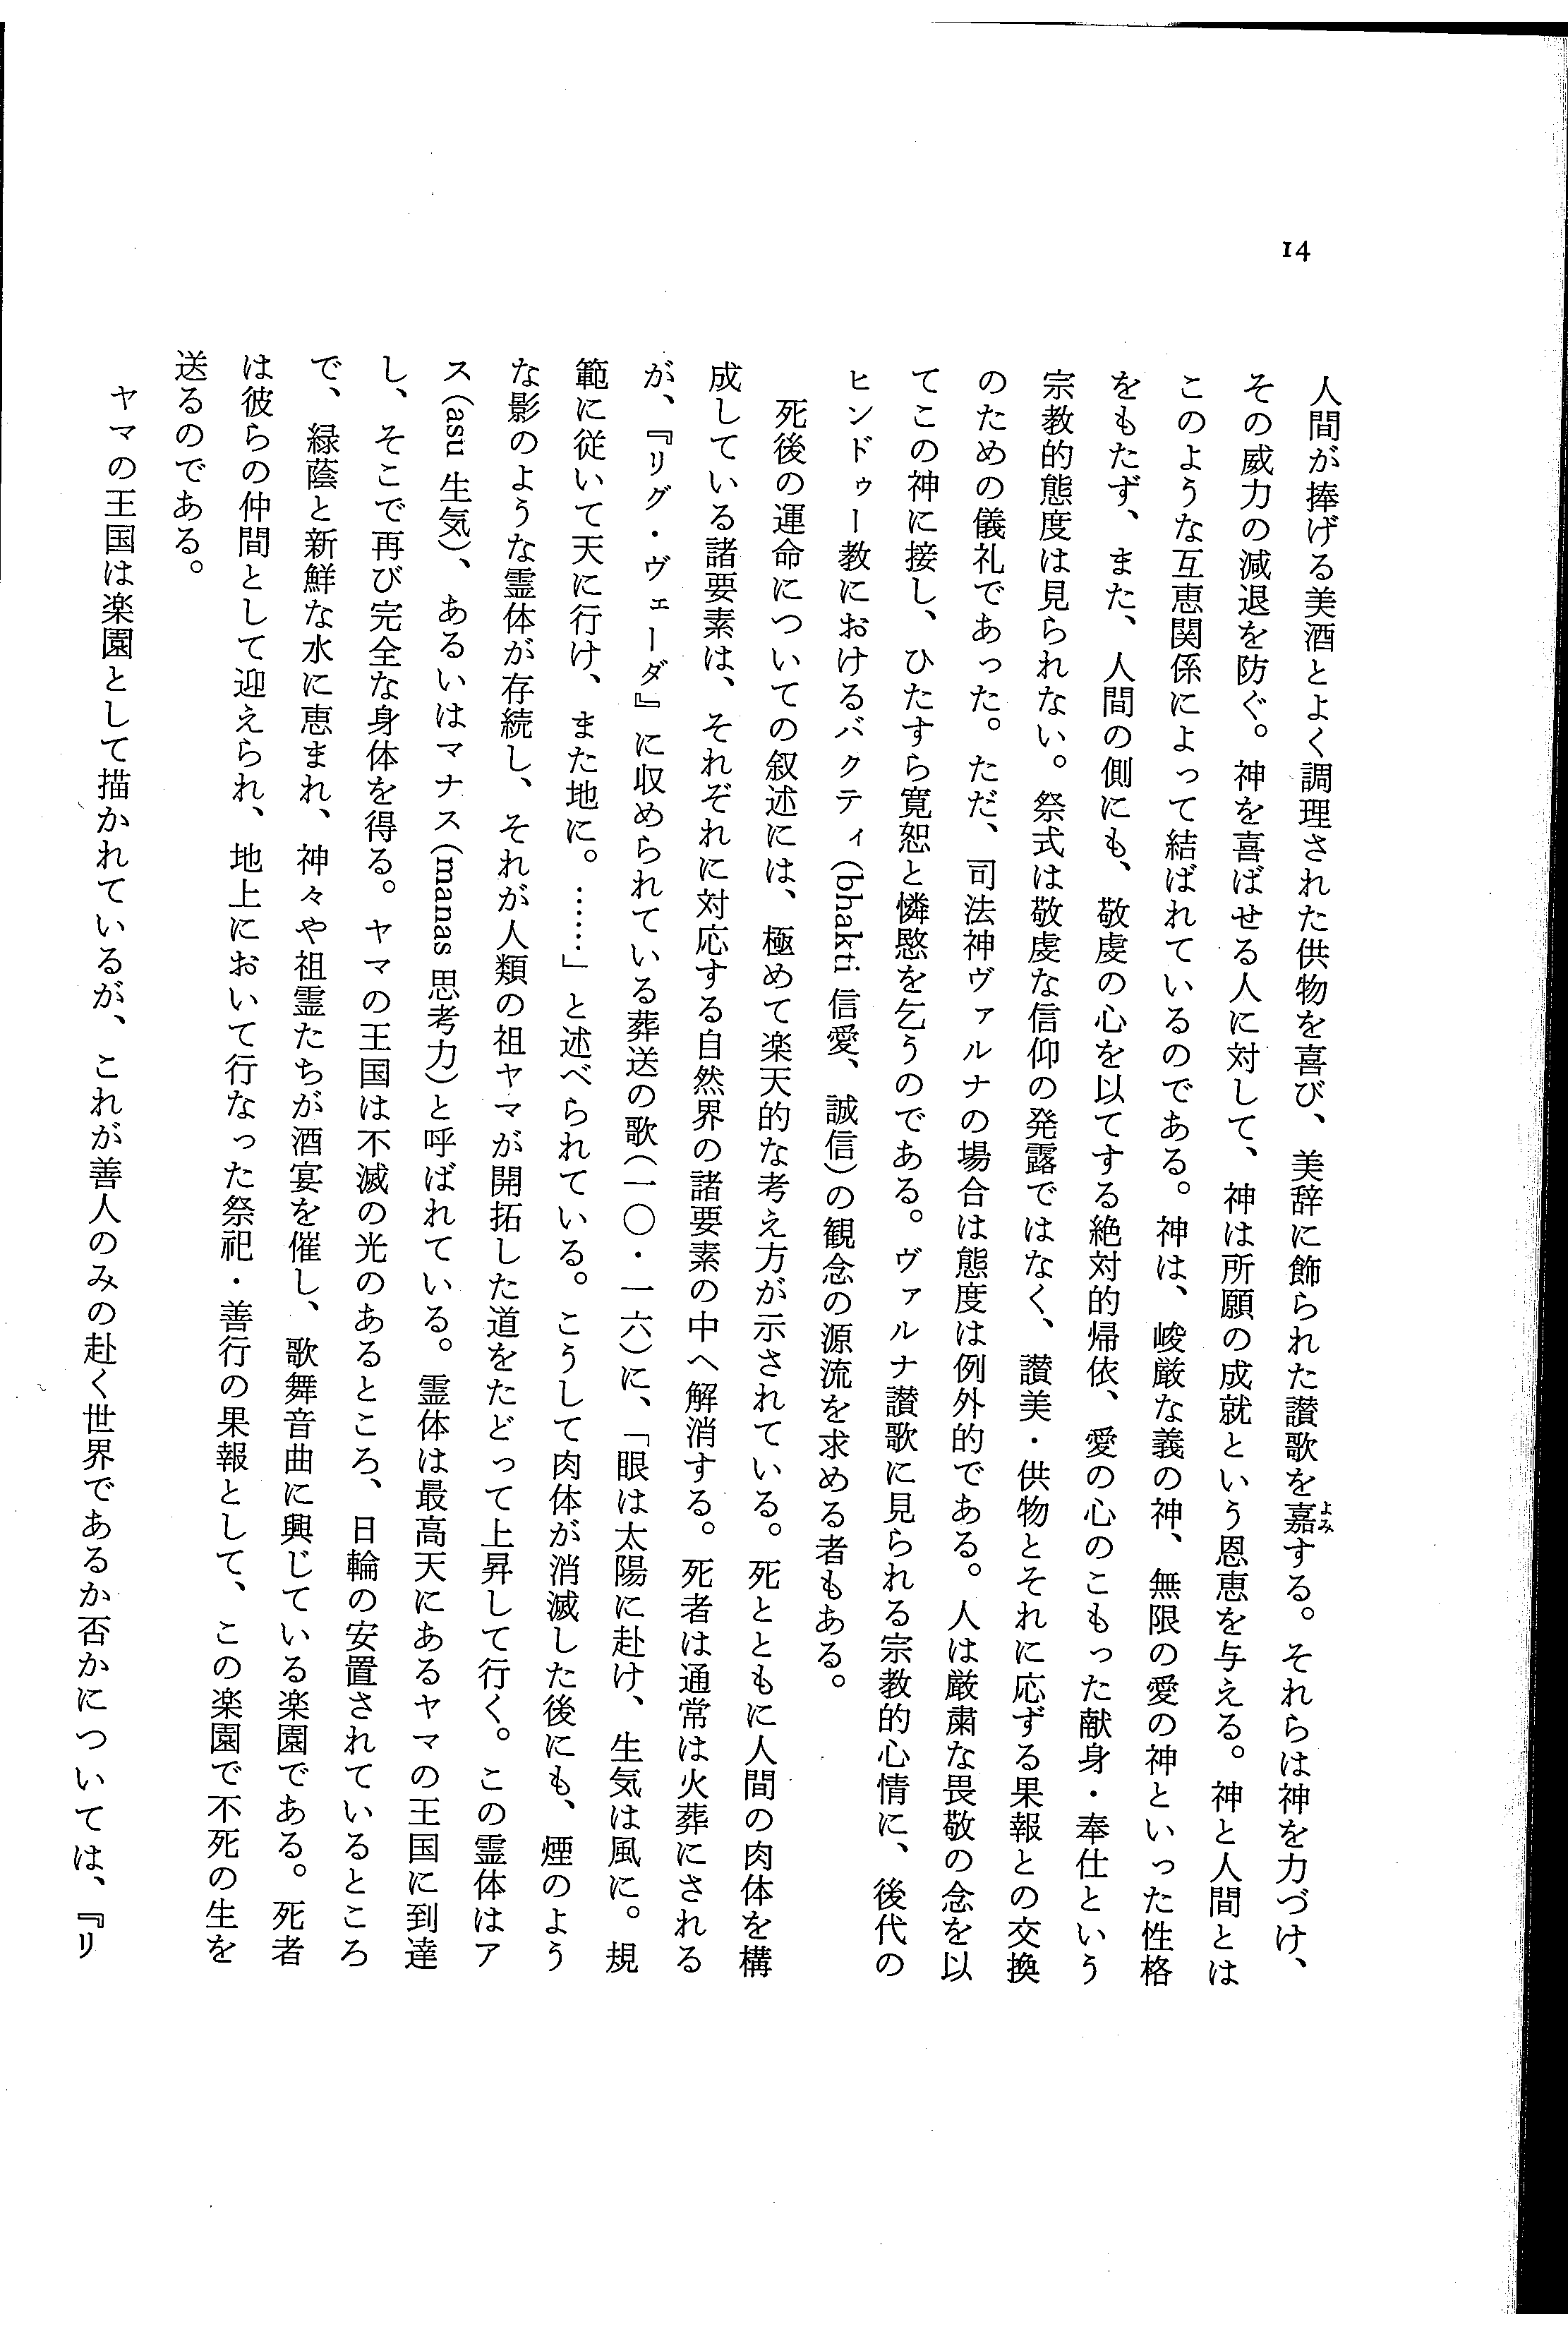 14
人間が捧げる美酒とよく調理された供物を喜び、美辞に飾られた讃歌を嘉よみする。それらは神を力づけ、
その威力の減退を防ぐ。神を喜ばせる人に対して、神は所願の成就という恩恵を与える。神と人間とは
このような互恵関係によって結ばれているのである。神は、峻厳な義の神、無限の愛の神といった性格
をもたず、また、人間の側にも、敬虔の心を以てする絶対的帰依、愛の心のこもった献身・奉仕という
宗教的態度は見られない。祭式は敬虔な信仰の発露ではなく、讃美・供物とそれに応ずる果報との交換
のための儀礼であった。ただ、司法神ヴァルナの場合は態度は例外的である。人は厳粛な畏敬の念を以
てこの神に接し、ひたすら寛恕と憐愍を乞うのである。ヴァルナ讃歌に見られる宗教的心情に、後代の
ヒンドゥー教におけるバクティ(bhakti 信愛、誠信)の観念の源流を求める者もある。
死後の運命についての叙述には、極めて楽天的な考え方が示されている。死とともに人間の肉体を構
成している諸要素は、それぞれに対応する自然界の諸要素の中へ解消する。死者は通常は火葬にされる
が、『リグ・ヴェーダ』に収められている葬送の歌(一〇・一六)に、「眼は太陽に赴け、生気は風に。規
範に従いて天に行け、また地に。……」と述べられている。こうして肉体が消滅した後にも、煙のよう
な影のような霊体が存続し、それが人類の祖ヤマが開拓した道をたどって上昇して行く。この霊体はア
ス(asu 生気)、あるいはマナス(manas 思考力)と呼ばれている。霊体は最高天にあるヤマの王国に到達
し、そこで再び完全な身体を得る。ヤマの王国は不滅の光のあるところ、日輪の安置されているところ
で、緑蔭と新鮮な水に恵まれ、神々や祖霊たちが酒宴を催し、歌舞音曲に興じている楽園である。死者
は彼らの仲間として迎えられ、地上において行なった祭祀・善行の果報として、この楽園で不死の生を
送るのである。
ヤマの王国は楽園として描かれているが、これが善人のみの赴く世界であるか否かについては、『リ